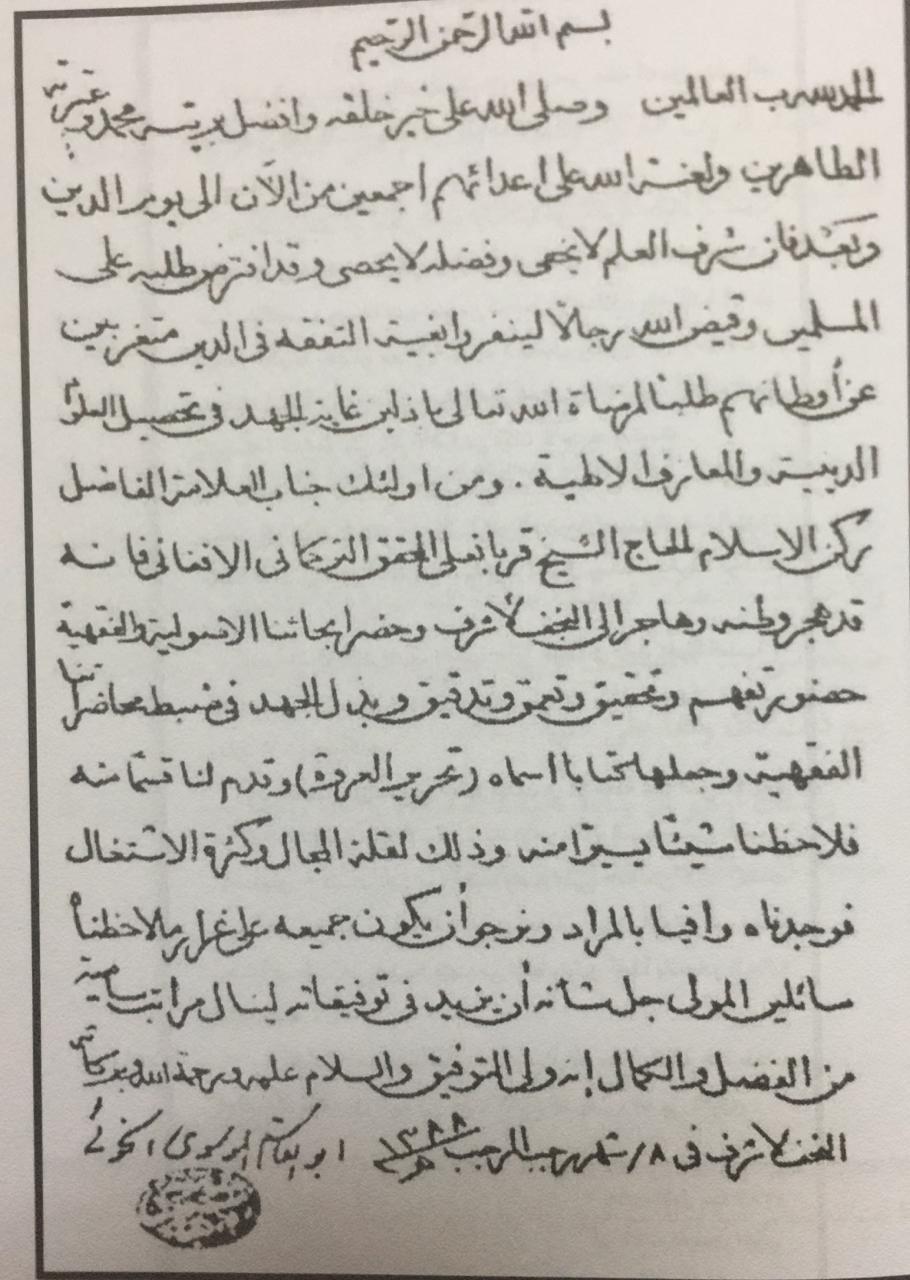 بسم الله الرحمن الرحيم
الحمد لله رب العالمين وصلى الله على خير خلقه وافضل بريته محمد وعترته
الطاهرين ولعنة الله على اعدائهم اجمعين من الآن الى يوم الدين
وبعد فان شرف العلم لا يخفى وفضله لا يحصى وقد افترض طلبه على
المسلمين وقيض الله رجالاً لينفروا بغية التفقه في الدين متغربين
عن أوطانهم طلباً لمرضاة الله تعالى باذلين غاية الجهد في تحصيل العلوم
الدينية والمعارف الالهية . ومن اولئك جناب العلامة الفاضل
ركن الاسلام الحاج الشيخ قربانعلى المحقق التركمانى الافغانى فانه
قد هجر وطنه وهاجر الى النجف الأشرف وحضر ابحاثنا الاصولية والفقهية
حضور تفهم وتحقيق وتعمق وتدقيق وبذل الجهد في ضبط محاضراتنا
الفقهية وجعلها كتابا اسماه (تحرير العروة) وقدم لنا قسما منه
فلاحظنا شيئاً يسيرا منه وذلك لقلة المجال وكثرة الاشتغال
فوجدناه وافيا بالمراد ونرجو أن يكون جميعه على غرار ما لاحظناه
سائلين المولى جل شأنه أن يزيد في توفيقاته لينال مراتب سامية
من الفضل والكمال إنه ولى التوفيق والسلام عليه ورحمة الله وبركاته
النجف الأشرف في ٨/ شهر رجب المرجب ١٣٨٨ هـ ابو القاسم الموسوى الخوئى